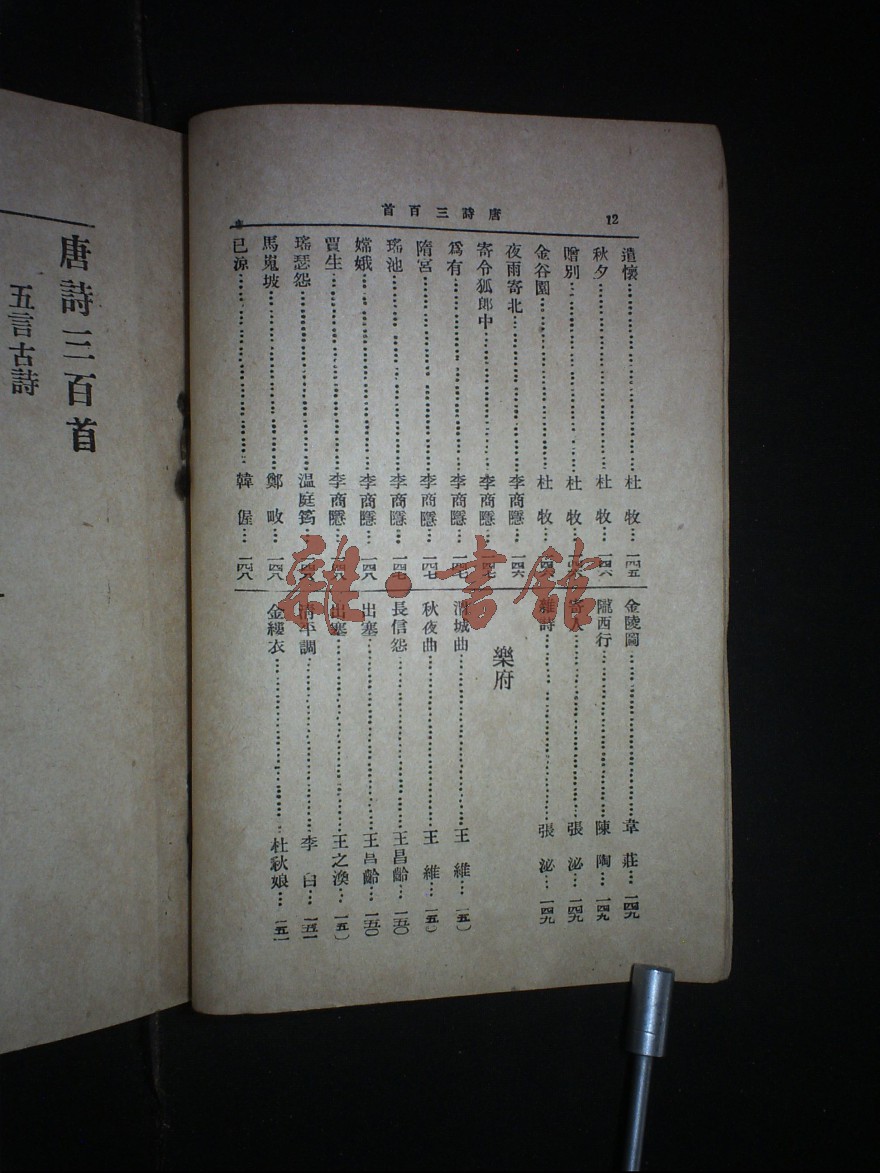 唐詩三百首
12
遣懷 杜牧 一四五
秋夕 杜牧 一四六
贈別 杜牧 一四六
金谷園 杜牧 一四六
夜雨寄北 李商隱 一四六
寄令狐郎中 李商隱 一四七
爲有 李商隱 一四七
隋宮 李商隱 一四七
瑤池 李商隱 一四七
嫦娥 李商隱 一四八
賈生 李商隱 一四八
瑤瑟怨 温庭筠 一四八
馬嵬坡 鄭畋 一四八
已涼 韓偓 一四八
金陵圖 韋莊 一四九
隴西行 陳陶 一四九
寄人 張泌 一四九
雜詩 張泌 一四九
樂府
渭城曲 王維 一五〇
秋夜曲 王維 一五〇
長信怨 王昌齡 一五〇
出塞 王昌齡 一五〇
出塞 王之渙 一五〇
清平調 李白 一五一
金縷衣 杜秋娘 一五一
雜·書館
唐詩三百首
五言古詩